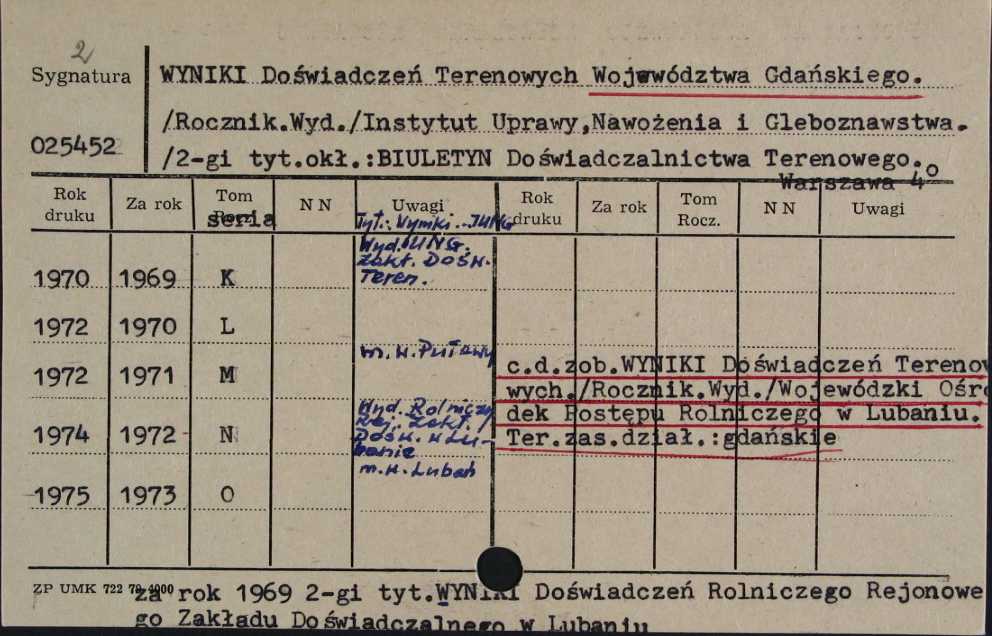 2
Sygnatura
WYNIKI Doświadczeń Terenowych Województwa Gdańskiego.
/Rocznik.Wyd./Instytut Uprawy,Nawożenia i Gleboznawstwa.
025452
/2-gi tyt.okł.:BIULETYN Doświadczalnictwa Terenowego.
Warszawa 4°
Rok druku Za rok Tom Rocz. NN Uwagi Rok druku Za rok Tom Rocz. NN Uwagi
seria
Tyt.: Wyniki .. IUNG
Wyd. IUNG.
Zakt. Dośw.
Teren.
1970 1969 K
1972 1970 L
m. w. Puławy
1972 1971 M
c.d.zob.WYNIKI Doświadczeń Tereno
wych./Rocznik.Wyd./Wojewódzki Ośro
dek Postępu Rolniczego w Lubaniu.
Ter.zas.dział.:gdańskie
Wyd. Rolniczy
Rej. Zakł.
Dośw. w Lu-
banie
m. w. Lubań
1974 1972 N
1975 1973 O
ZP UMK 722 79 4000
za rok 1969 2-gi tyt.WYNIKI Doświadczeń Rolniczego Rejonowe
go Zakładu Doświadczalnego w Lubaniu